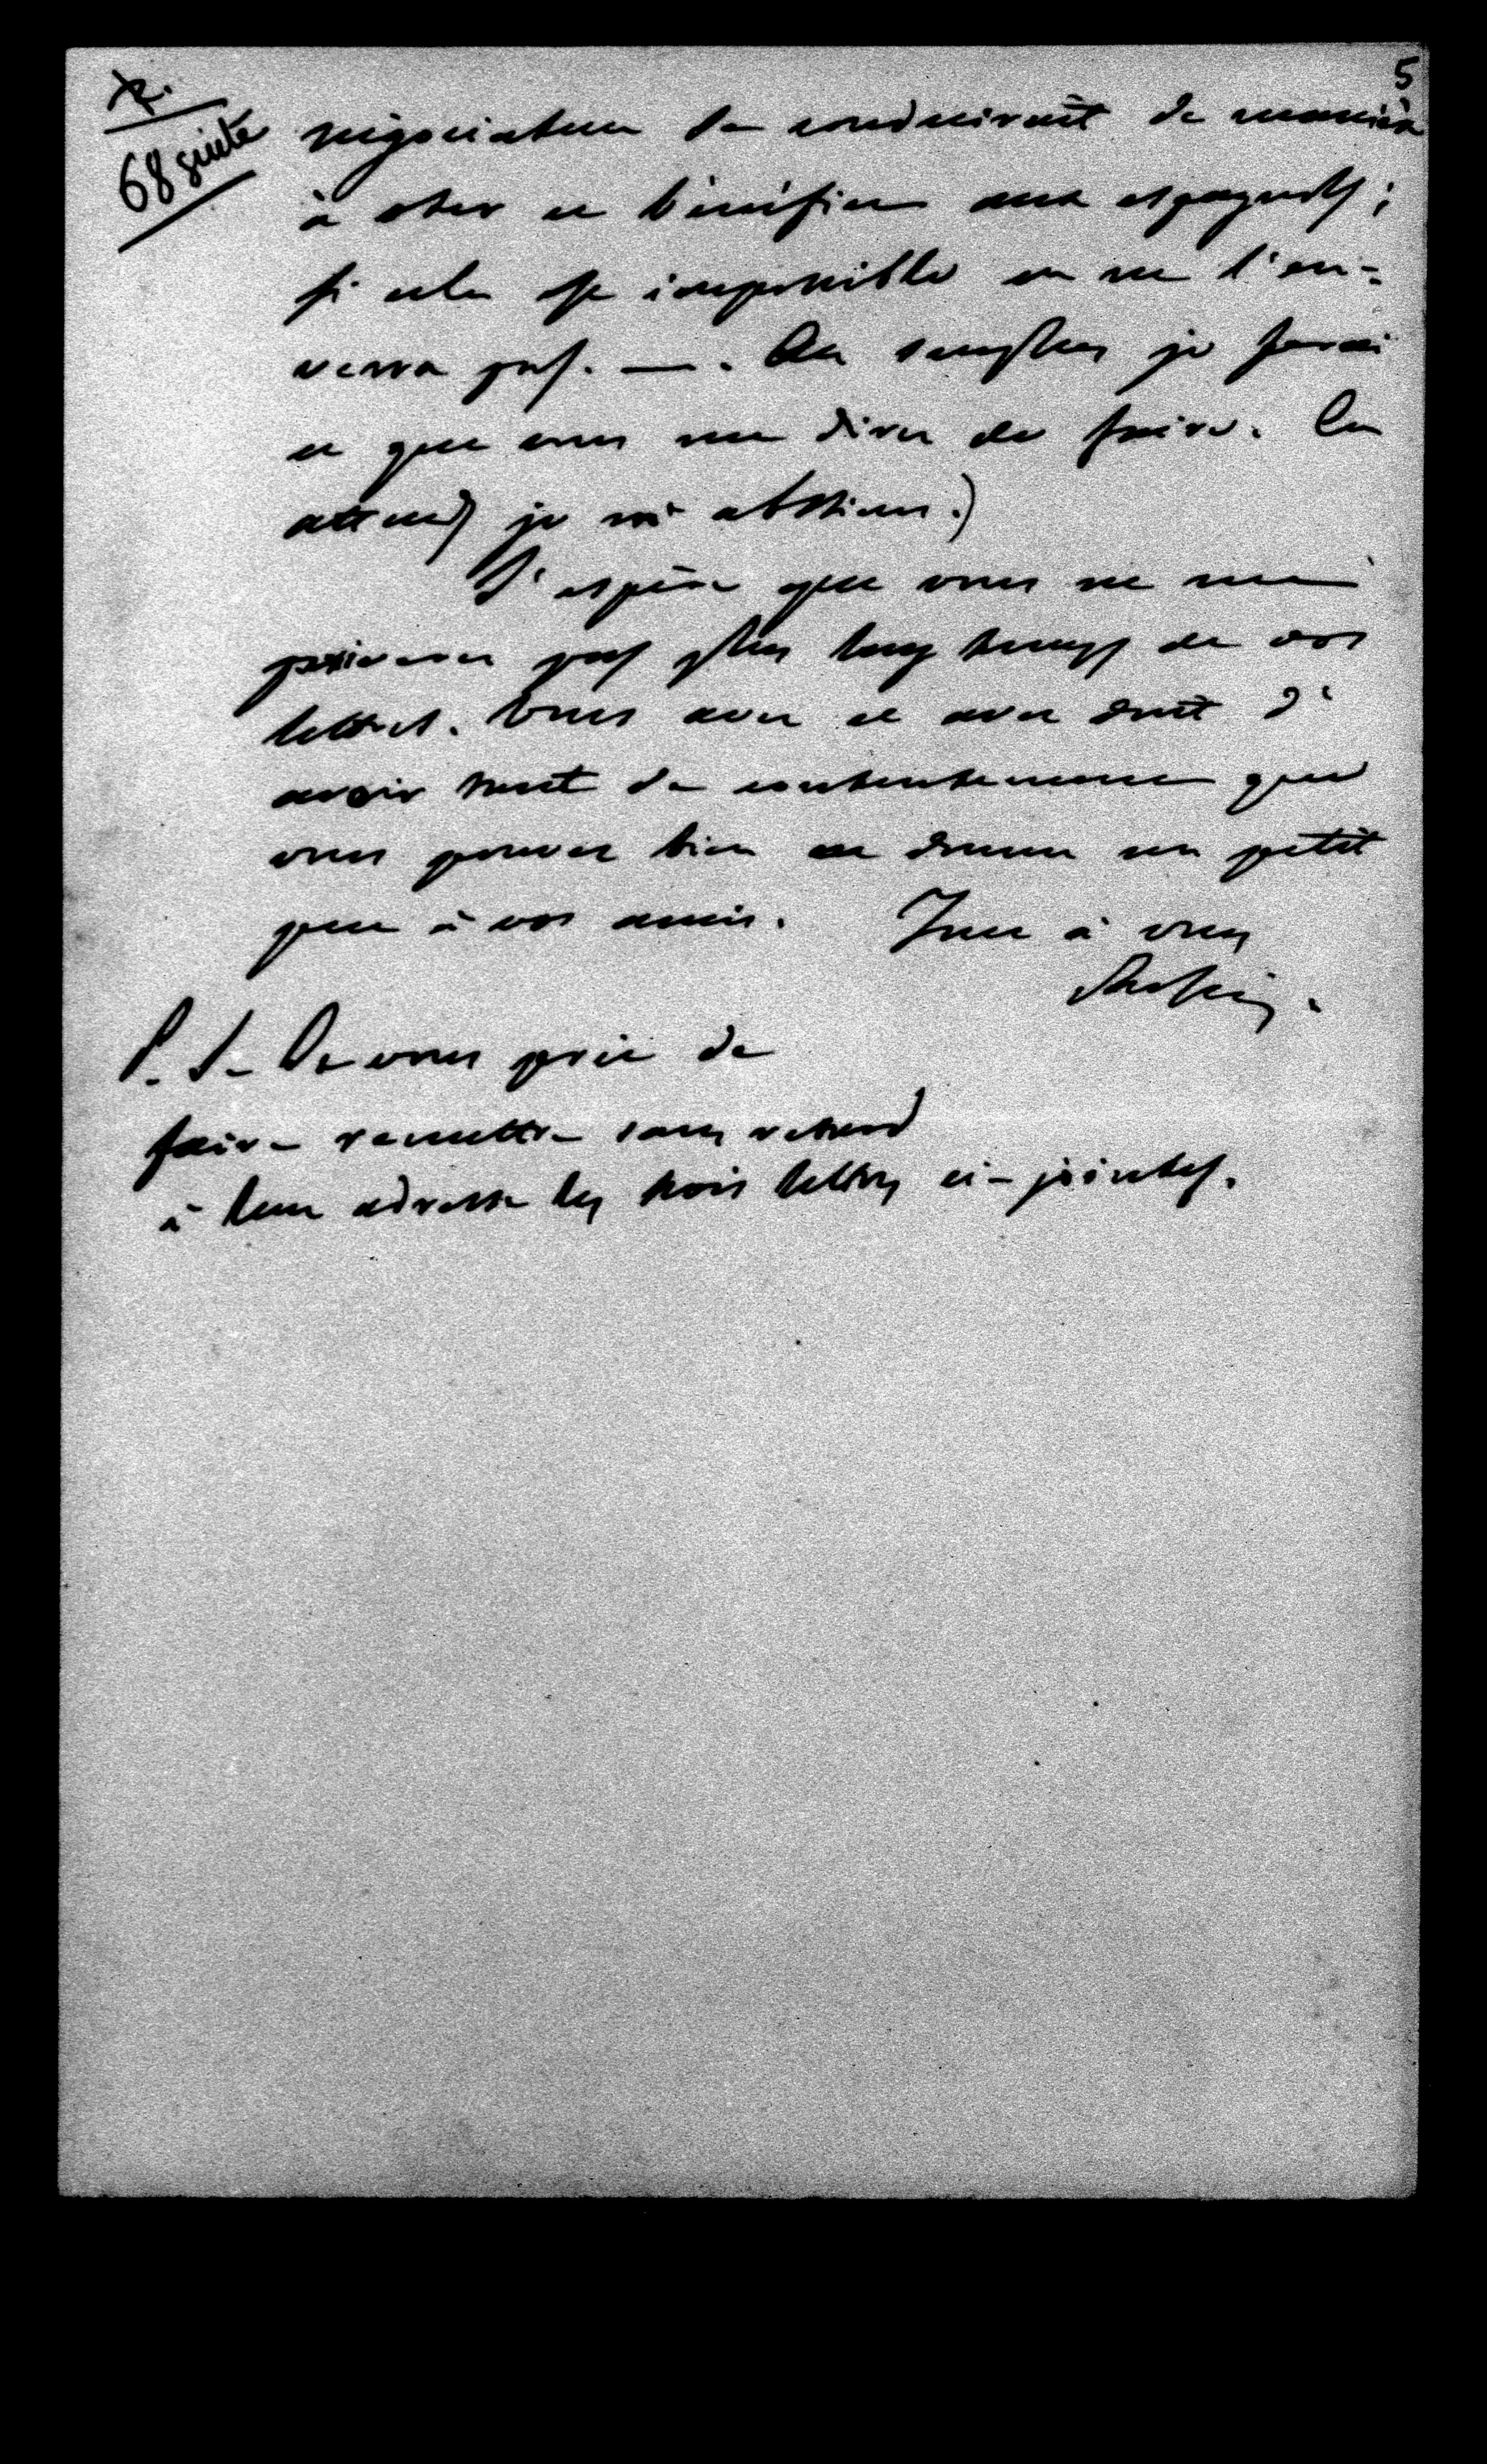 5
68 suite
négociateur se conduiroit de manière
à oter ce bénéfice aux espagnols;
si cela est impossible on ne l'en-
verra pas. —. Au surplus je ferai
ce que vous me direz de faire. En
attend je m'abstiens.)
J'espère que vous ne me
priverez pas plus long temps de vos
lettres. Vous avez et avez droit d'
avoir tant de contentement que
vous pouvez bien en donner un petit
peu à vos amis. Tout à vous
P. S. Je vous prie de
faire remettre sans retard
à leur adresse les trois lettres ci-jointes.